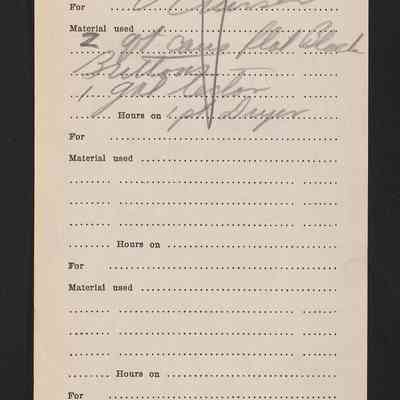 For
Material used
2 qt cans flat Black
Brittons
1 gal
Hours on 1 pt Dryer
For
Material used
Hours on
For
Material used
Hours on
For